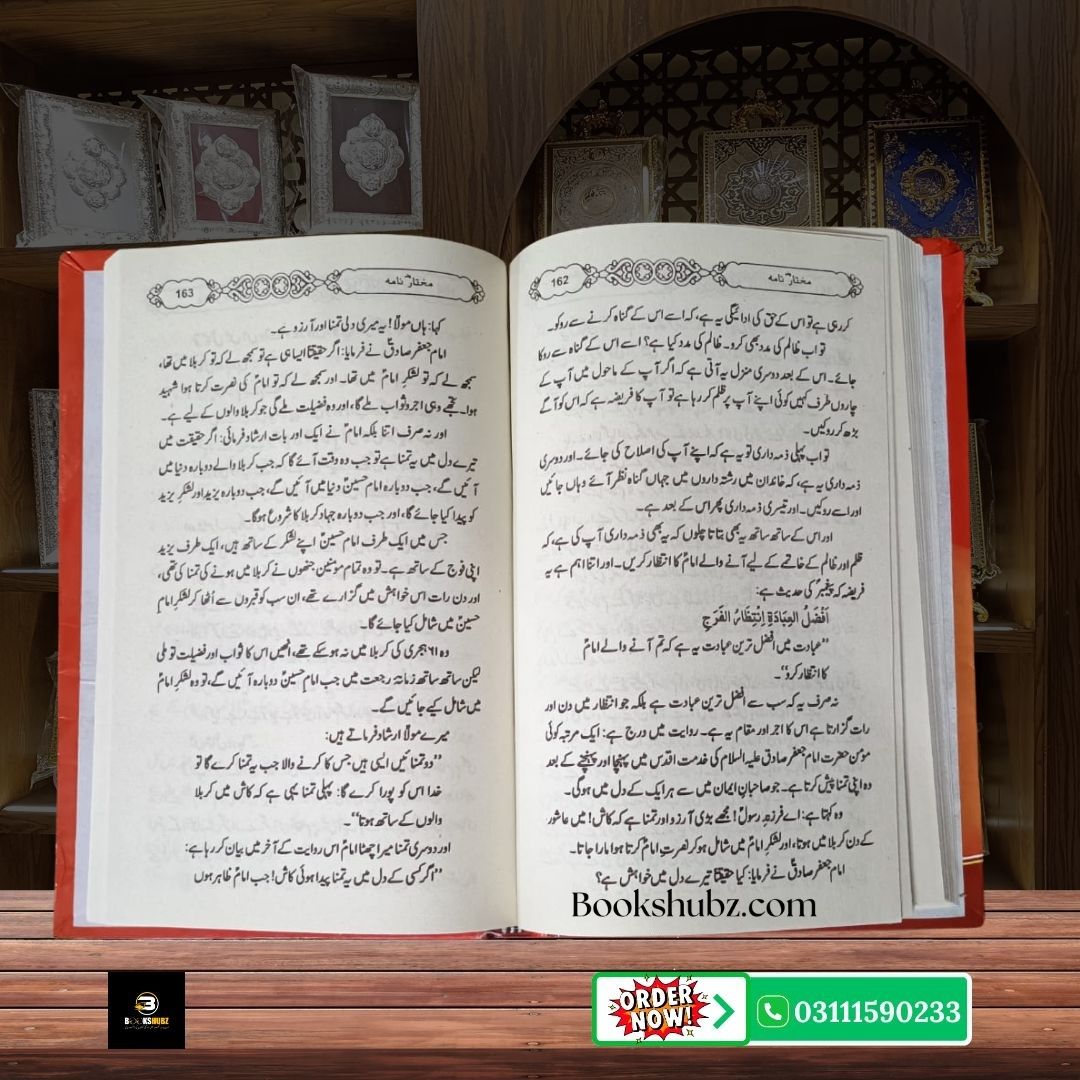 مختار نامہ
162
کر رہی ہے تو اس کے حق کی ادائیگی یہ ہے، کہ اسے اس کے گناہ کرنے سے روکو۔
تو اب ظالم کی مدد بھی کرو۔ ظالم کی مدد کیا ہے؟ اسے اس کے گناہ سے روکا
جائے۔ اس کے بعد دوسری منزل یہ آتی ہے کہ اگر آپ کے ماحول میں آپ کے
چاروں طرف کہیں کوئی اپنے آپ پر ظلم کر رہا ہے تو آپ کا فریضہ ہے کہ اس کو آگے
بڑھ کر روکیں۔
تو اب پہلی ذمہ داری تو یہ ہے کہ اپنے آپ کی اصلاح کی جائے۔ اور دوسری
ذمہ داری یہ ہے، کہ خاندان میں رشتہ داروں میں جہاں گناہ نظر آئے وہاں جائیں
اور اسے روکیں۔ اور تیسری ذمہ داری پھر اس کے بعد ہے۔
اور اس کے ساتھ ساتھ یہ بھی بتاتا چلوں کہ یہ بھی ذمہ داری آپ کی ہے، کہ
ظلم اور ظالم کے خاتمے کے لیے آنے والے امامؑ کا انتظار کریں۔ اور اتنا اہم ہے یہ
فریضہ کہ پیغمبرؐ کی حدیث ہے:
اَفْضَلُ العِبَادَةِ اِنْتِظَارُ الفَرَجِ
”عبادت میں افضل ترین عبادت یہ ہے کہ تم آنے والے امامؑ
کا انتظار کرو“۔
نہ صرف یہ کہ سب سے افضل ترین عبادت ہے بلکہ جو انتظار میں دن اور
رات گزارتا ہے اس کا اجر اور مقام یہ ہے۔ روایت میں درج ہے: ایک مرتبہ کوئی
مؤمن حضرت امام جعفر صادق علیہ السلام کی خدمت اقدس میں پہنچا اور پہنچنے کے بعد
وہ اپنی تمنا پیش کرتا ہے۔ جو صاحبانِ ایمان میں سے ہر ایک کے دل میں ہوگی۔
وہ کہتا ہے: اے فرزندِ رسولؐ! مجھے بڑی آرزو اور تمنا ہے کہ کاش! میں عاشور
کے دن کربلا میں ہوتا، اور لشکرِ امامؑ میں شامل ہو کر نصرتِ امامؑ کرتا ہوا مارا جاتا۔
امام جعفر صادقؑ نے فرمایا: کیا حقیقتاً تیرے دل میں خواہش ہے؟
مختار نامہ
163
کہا: ہاں مولاؑ! یہ میری دلی تمنا اور آرزو ہے۔
امام جعفر صادقؑ نے فرمایا: اگر حقیقتاً ایسا ہی ہے تو سمجھ لے کہ تو کربلا میں تھا،
سمجھ لے کہ تو لشکرِ امامؑ میں تھا۔ اور سمجھ لے کہ تو امامؑ کی نصرت کرتا ہوا شہید
ہوا۔ تجھے وہی اجر و ثواب ملے گا، اور وہ فضیلت ملے گی جو کربلا والوں کے لیے ہے۔
اور نہ صرف اتنا بلکہ امامؑ نے ایک اور بات ارشاد فرمائی: اگر حقیقت میں
تیرے دل میں یہ تمنا ہے تو جب وہ وقت آئے گا کہ جب کربلا والے دوبارہ دنیا میں
آئیں گے، جب دوبارہ امام حسینؑ دنیا میں آئیں گے، جب دوبارہ یزید اور لشکرِ یزید
کو پیدا کیا جائے گا، اور جب دوبارہ جہادِ کربلا کا شروع ہوگا۔
جس میں ایک طرف امام حسینؑ اپنے لشکر کے ساتھ ہیں، ایک طرف یزید
اپنی فوج کے ساتھ ہے۔ تو وہ تمام مؤمنین جنھوں نے کربلا میں ہونے کی تمنا کی تھی،
اور دن رات اس خواہش میں گزارے تھے، ان سب کو قبروں سے اُٹھا کر لشکرِ امام
حسینؑ میں شامل کیا جائے گا۔
وہ ۶۱ ہجری کی کربلا میں نہ ہو سکے تھے، انھیں اس کا ثواب اور فضیلت تو ملی
لیکن ساتھ ساتھ زمانۂ رجعت میں جب امام حسینؑ دوبارہ آئیں گے، تو وہ لشکرِ امامؑ
میں شامل کیے جائیں گے۔
میرے مولاؑ ارشاد فرماتے ہیں:
”دو تمنائیں ایسی ہیں جس کا کرنے والا جب یہ تمنا کرے گا تو
خدا اس کو پورا کرے گا: پہلی تمنا یہی ہے کہ کاش میں کربلا
والوں کے ساتھ ہوتا“۔
اور دوسری تمنا میرا چھٹا امامؑ اس روایت کے آخر میں بیان کر رہا ہے:
”اگر کسی کے دل میں یہ تمنا پیدا ہوئی کاش! جب امامؑ ظاہر ہوں
Bookshubz.com
BOOKSHUBZ
ORDER NOW!
03111590233